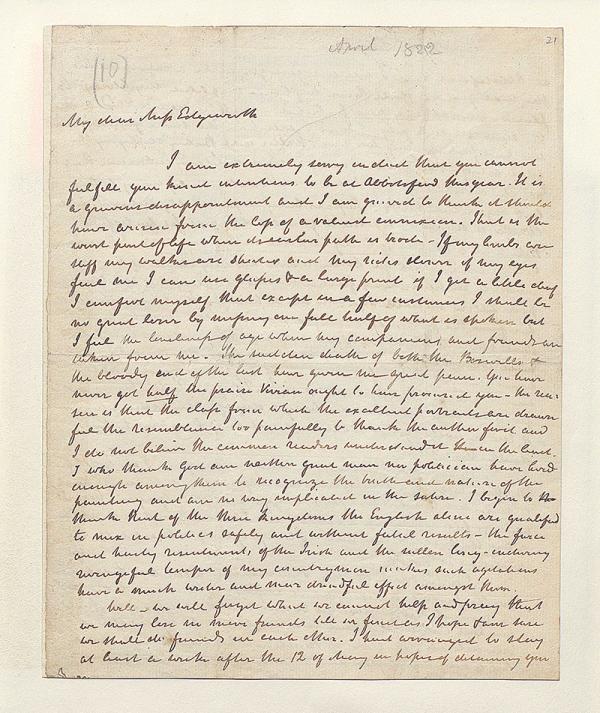 April 1822
21
(10)
My dear Miss Edgeworth
I am extremely sorry indeed that you cannot
fulfill your kind intentions to be at Abbotsford this year. It is
a grievous disappointment and I am grieved to think it should
have arisen from the loss of a valued connexion. That is the
worst part of life when its earlier path is trode - If my limbs are
stiff my walks are shorter and my rides slower if my eyes
fail me I can use glasses & a large print if I get a little deaf
I comfort myself that except in a few instances I should be
no great loser by missing one full half of what is spoken but
I feel the loneliness of age when my companions and friends are
taken from me. The sudden death of both the Boswells &
the bloody end of the last have given me great pain. You have
never got half the praise Vivian ought to have procured you - the rea-
son is that the class from which the excellent portraits are drawn
feel the resemblance too painfully to thank the author for it and
I do not believe the common readers understand it in the least.
I who thank God am neither great man nor politician have lived
enough among them to recognize the truth and nature of the
painting and am no way implicated in the satire. I begin to
think that of the three kingdoms the English alone are qualified
to mix in politics safely and without fatal results - the fierce
and hasty resentments of the Irish and the sullen long-enduring
revengeful temper of my countrymen makes such agitations
have a much wider and more dreadful effect amongst them.
Well - we will forget what we cannot help and pray that
we may lose no more friends till we find as I hope & am sure
we shall do friends in each other. I had arranged to stay
at least a week after the 12 of May in hopes of detaining you